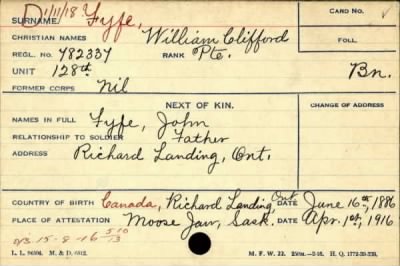 D 1/11/18
CARD NO.
SURNAME Fyfe,
CHRISTIAN NAMES William Clifford
FOLL.
REGL. NO. 782337 RANK Pte.
UNIT 128th Bn.
FORMER CORPS Nil
NEXT OF KIN. CHANGE OF ADDRESS
NAMES IN FULL Fyfe, John
RELATIONSHIP TO SOLDIER Father
ADDRESS Richard Landing, Ont.
COUNTRY OF BIRTH Canada, Richard Landing, Ont DATE June 16th, 1886
PLACE OF ATTESTATION Moose Jaw, Sask. DATE Apr. 1st, 1916
15-8-16 5/10 13
L. L. M. & D. M. F. W. 22. H. Q. 1772-39-339.